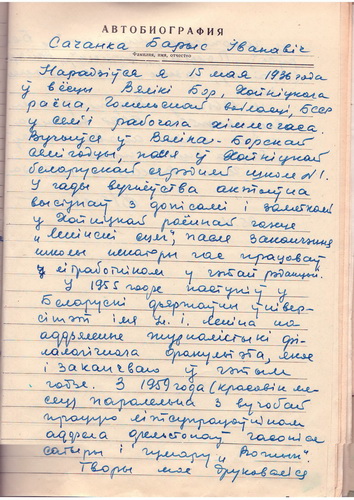 АВТОБИОГРАФИЯ
Сачанка Барыс Іванавіч
Фамилия, имя, отчество
Нарадзіўся я 15 мая 1936 года
ў вёсцы Вялікі Бор, Хойніцкага
раёна, Гомельскай вобласці, БССР
у сям'і рабочага хімлесгаса.
Вучыўся ў Вяліка-Борскай
сямігодцы, пасля ў Хойніцкай
беларускай сярэдняй школе №1.
У гады вучнёўства актыўна
выступаў з допісамі і заметкамі
у Хойніцкай раённай газеце
"Ленінскі сцяг", пасля заканчэння
школы некаторы час працаваў
літработнікам у гэтай рэдакцыі.
У 1955 годзе паступіў у
Беларускі дзяржаўны ўнівер-
сітэт імя У. І. Леніна на
аддзяленне журналістыкі фі-
лалагічнага факультэта, якое
і заканчваю ў гэтым
годзе. З 1959 года (красавік ме-
сяц) паралельна з вучобай
працую літсупрацоўнікам
аддзела фельетонаў часопіса
сатыры і гумару "Вожык".
Творы мае друкаваліся